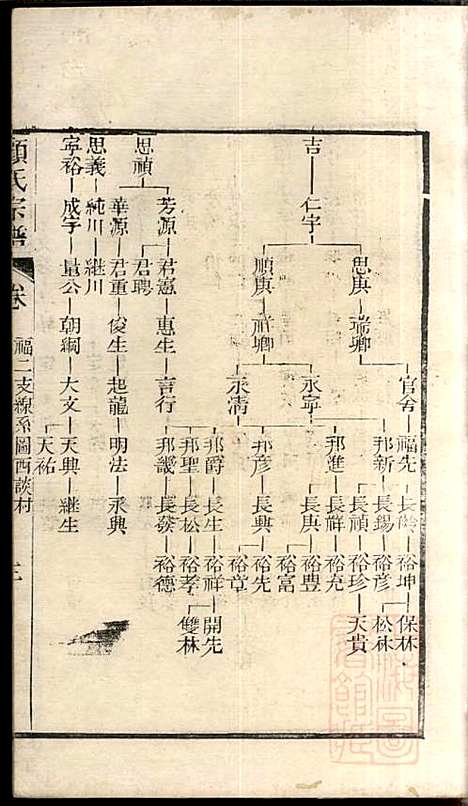 吉 仁宇 思庚 瑞卿 官舍 福先 長齡 裕坤 保林
松林
邦新 長錫 裕彦
永寧 長禎 裕珍 天貴
邦進 長祥 裕充
長庚 裕豐
裕富
順庚 祥卿 永清 邦彦 長興 裕先
裕章
思禎 芳源 君憲 惠生 言行 邦爵 長生 裕祥 開先
雙林
邦聖 長松 裕孝
邦畿 長發 裕德
君聘
華源 君重 俊生 起龍 明法 永興
思義 純川 繼川
寧裕 成宇 量公 朝綱 大文 天興 繼生
天祐
顧氏宗譜 卷 福二支線系圖西談村 三